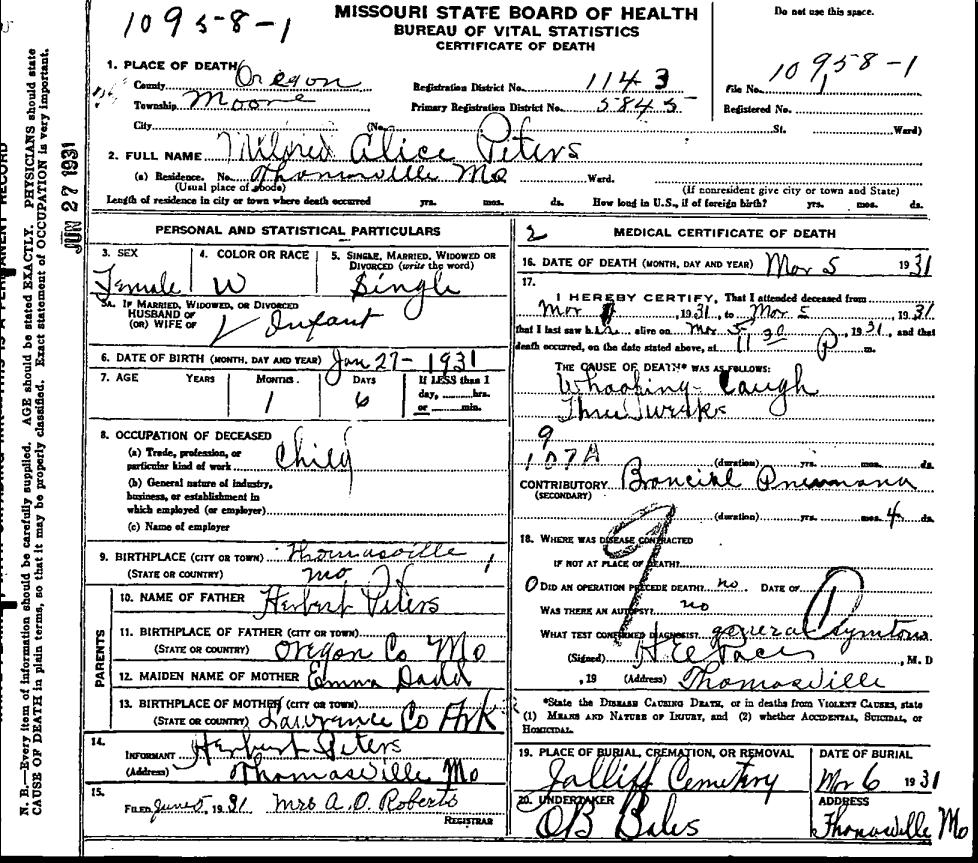 10958-1
MISSOURI STATE BOARD OF HEALTH
BUREAU OF VITAL STATISTICS
CERTIFICATE OF DEATH
Do not use this space.
1. PLACE OF DEATH
County Oregon
Township Moore
City (No. St. Ward)
Registration District No. 1143
Primary Registration District No. 5845
File No. 10958-1
Registered No.
2. FULL NAME Mildred Alice Peters
(a) Residence. No. Thomasville Mo Ward.
(Usual place of abode) (If nonresident give city or town and State)
Length of residence in city or town where death occurred yrs. mos. ds. How long in U.S., if of foreign birth? yrs. mos. ds.
PERSONAL AND STATISTICAL PARTICULARS
3. SEX
Female
4. COLOR OR RACE
W
5. SINGLE, MARRIED, WIDOWED OR DIVORCED (write the word)
Single
5A. IF MARRIED, WIDOWED, OR DIVORCED
HUSBAND OF
(OR) WIFE OF Infant
6. DATE OF BIRTH (MONTH, DAY AND YEAR) Jan 27 - 1931
7. AGE YEARS MONTHS DAYS If LESS than 1
day, hrs.
or min.
1 6
8. OCCUPATION OF DECEASED
(a) Trade, profession, or
particular kind of work Child
(b) General nature of industry,
business, or establishment in
which employed (or employer)
(c) Name of employer
9. BIRTHPLACE (CITY OR TOWN) Thomasville
(STATE OR COUNTRY) Mo
PARENTS
10. NAME OF FATHER Herbert Peters
11. BIRTHPLACE OF FATHER (CITY OR TOWN)
(STATE OR COUNTRY) Oregon Co Mo
12. MAIDEN NAME OF MOTHER Emma Dadd
13. BIRTHPLACE OF MOTHER (CITY OR TOWN)
(STATE OR COUNTRY) Lawrence Co Ark
14.
INFORMANT Herbert Peters
(Address) Thomasville Mo
15.
FILED June 5, 1931 Mrs A. O. Roberts
REGISTRAR
2 MEDICAL CERTIFICATE OF DEATH
16. DATE OF DEATH (MONTH, DAY AND YEAR) Mar 5 1931
17.
I HEREBY CERTIFY, That I attended deceased from
Mar , 1931, to Mar 5, 1931
that I last saw h alive on Mar 5, 1931, and that
death occurred, on the date stated above, at 11 30 P m.
THE CAUSE OF DEATH* WAS AS FOLLOWS:
Whooping Caugh
9
107A
(duration) yrs. mos. ds.
CONTRIBUTORY
(SECONDARY)
(duration) yrs. mos. 4 ds.
18. WHERE WAS DISEASE CONTRACTED
IF NOT AT PLACE OF DEATH?
DID AN OPERATION PRECEDE DEATH? no DATE OF
WAS THERE AN AUTOPSY? no
WHAT TEST CONFIRMED DIAGNOSIS? general
(Signed) , M. D
, 19 (Address) Thomasville
*State the DISEASE CAUSING DEATH, or in deaths from VIOLENT CAUSES, state
(1) MEANS AND NATURE OF INJURY, and (2) whether ACCIDENTAL, SUICIDAL, or
HOMICIDAL.
19. PLACE OF BURIAL, CREMATION, OR REMOVAL
Jalliff Cemetery
DATE OF BURIAL
Mar 6 1931
20. UNDERTAKER
OB Bales
ADDRESS
Thomasville Mo
JUN 27 1931
N. B.—Every item of information should be carefully supplied. AGE should be stated EXACTLY. PHYSICIANS should state
CAUSE OF DEATH in plain terms, so that it may be properly classified. Exact statement of OCCUPATION is very important.